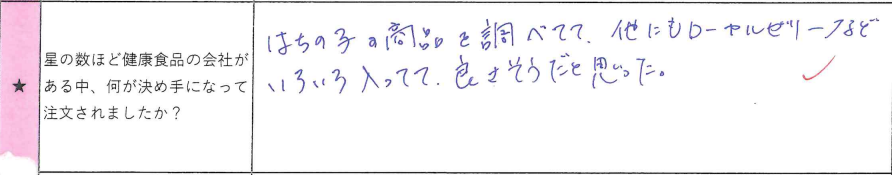 ★
星の数ほど健康食品の会社が
ある中、何が決め手になって
注文されましたか？
はちの子の商品を調べてて、他にもローヤルゼリーなど
いろいろ入ってて、良さそうだと思った。